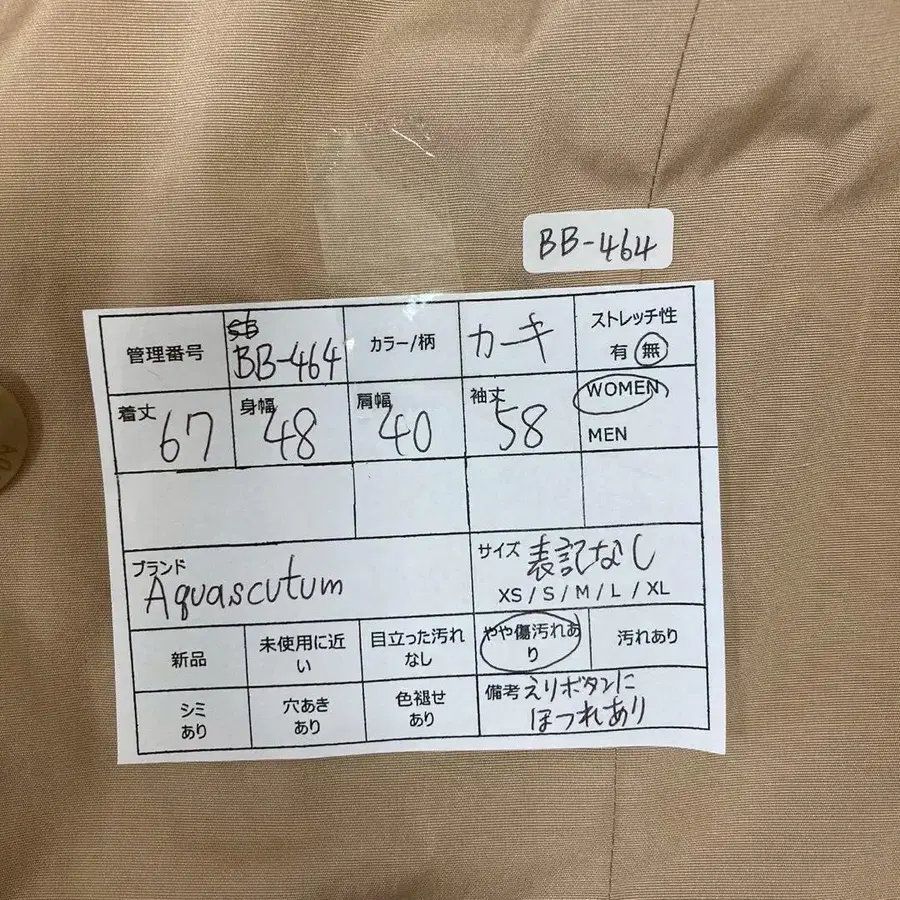 BB-464
管理番号
BB-464
カラー/柄
カーキ
ストレッチ性
有 無
着丈
67
身幅
48
肩幅
40
袖丈
58
WOMEN
MEN
ブランド
Aquascutum
サイズ 表記なし
XS / S / M / L / XL
新品
未使用に近
い
目立った汚れ
なし
やや傷汚れあ
り
汚れあり
シミ
あり
穴あき
あり
色褪せ
あり
備考 えりボタンに
ほつれあり